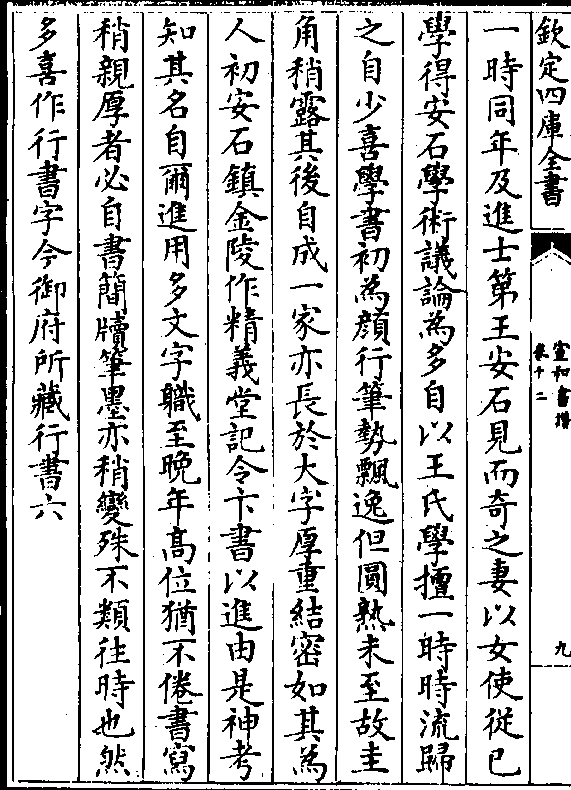 欽定四庫全書
宣和書譜
卷十二
九
一時同年及進士第王安石見而奇之妻以女使從已
學得安石學術議論為多自以王氏學擅一時時流歸
之自少喜學書初為顔行筆勢飄逸但圓熟未至故圭
角稍露其後自成一家亦長於大字厚重結密如其為
人初安石鎮金陵作精義堂記令卞書以進由是神考
知其名自爾進用多文字職至晚年髙位猶不倦書寫
稍親厚者必自書簡牘筆墨亦稍變殊不類往時也然
多喜作行書字今御府所藏行書六